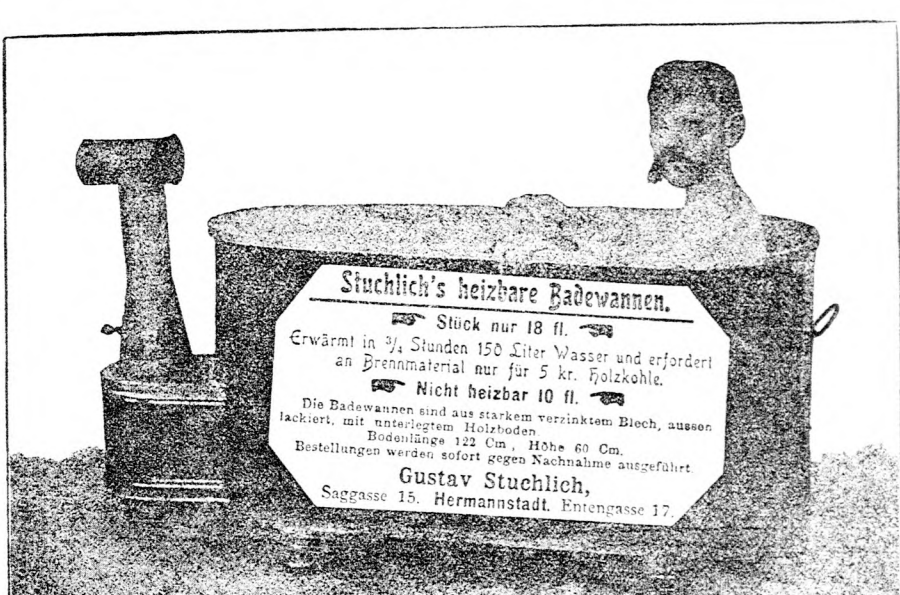 Stuchlich's heizbare Badewannen.
Stück nur 18 fl.
Erwärmt in 3/4 Stunden 150 Liter Wasser und erfordert
an Brennmaterial nur für 5 kr. Holzkohle.
Nicht heizbar 10 fl.
Die Badewannen sind aus starkem verzinktem Blech, aussen
lackiert, mit unterlegtem Holzboden
Bodenlänge 122 Cm, Höhe 60 Cm.
Bestellungen werden sofort gegen Nachnahme ausgeführt.
Gustav Stuchlich,
Saggasse 15. Hermannstadt. Entengasse 17.